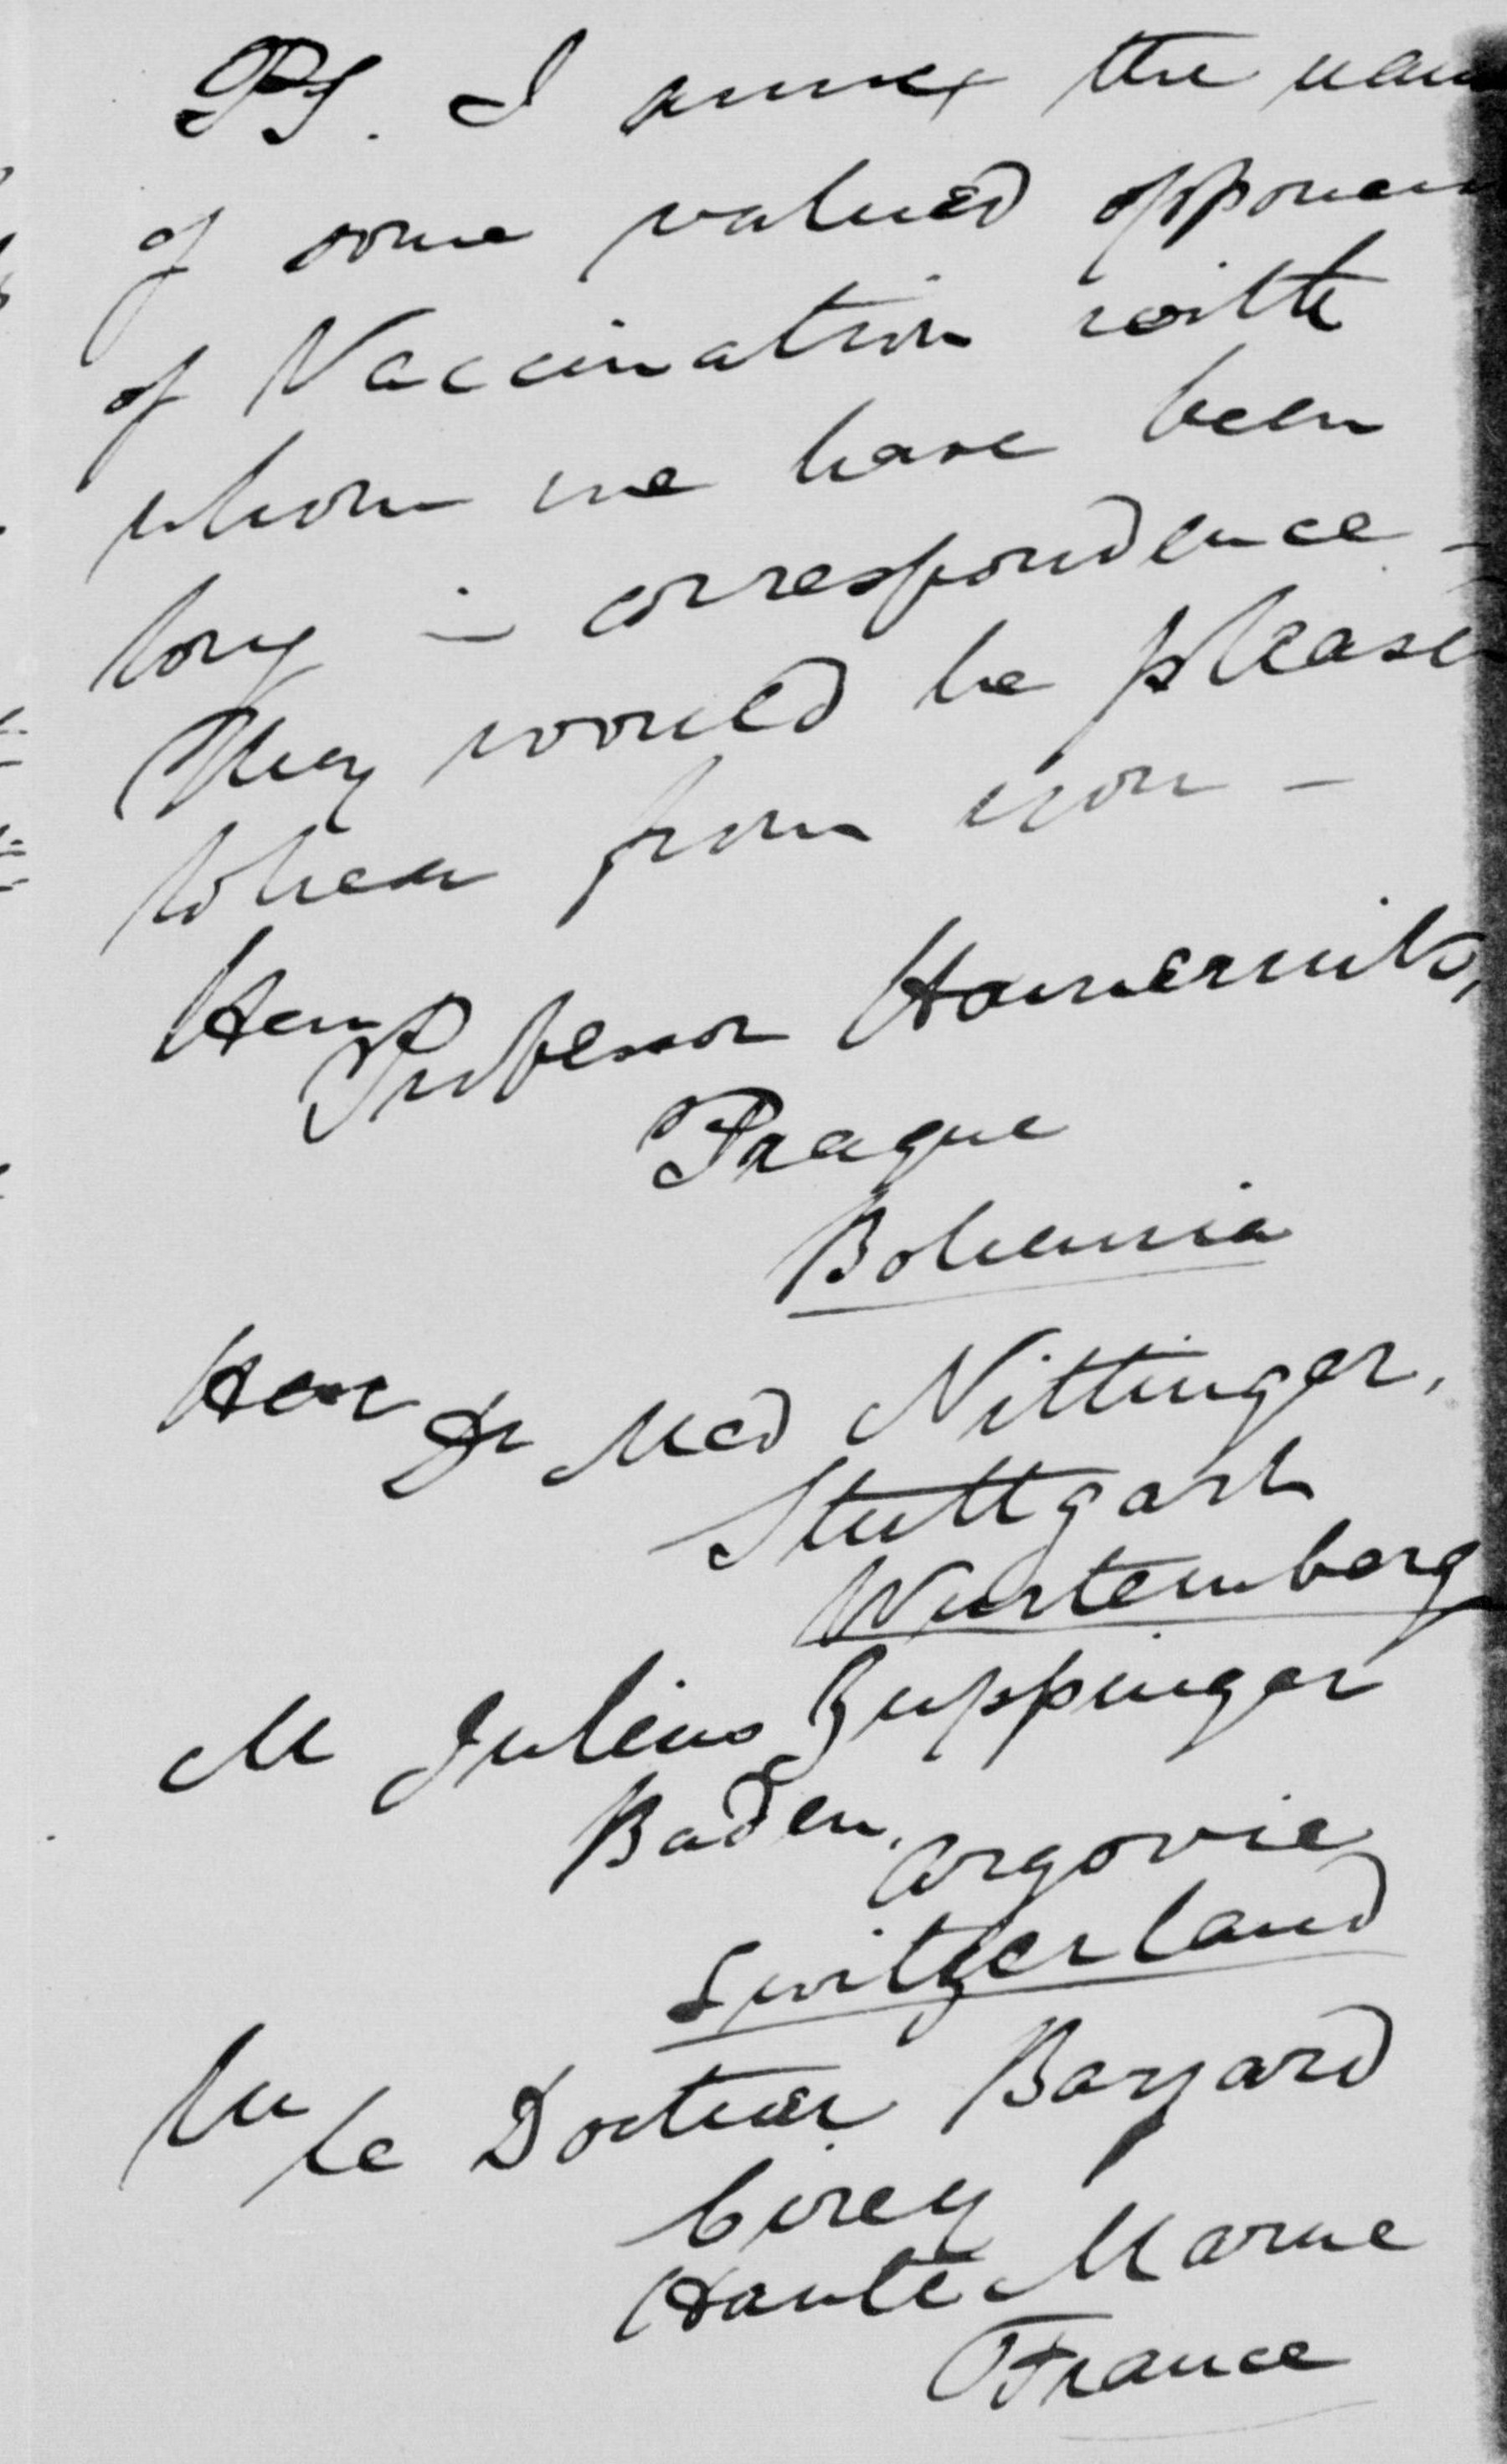 PS. I annex the nam
of some valued opponen
of Vaccination with
whom we have been
long in correspondence -
They would be please
to hear from you -
Herr Professor Hamernik,
Prague
Bohemia
Herr Dr Med Nittinger,
Stuttgart
Wurtemberg
M Julius Guppinger
Baden, Argovie
Switzerland
M le Docteur Bayard
Cirey
Haute Marne
France